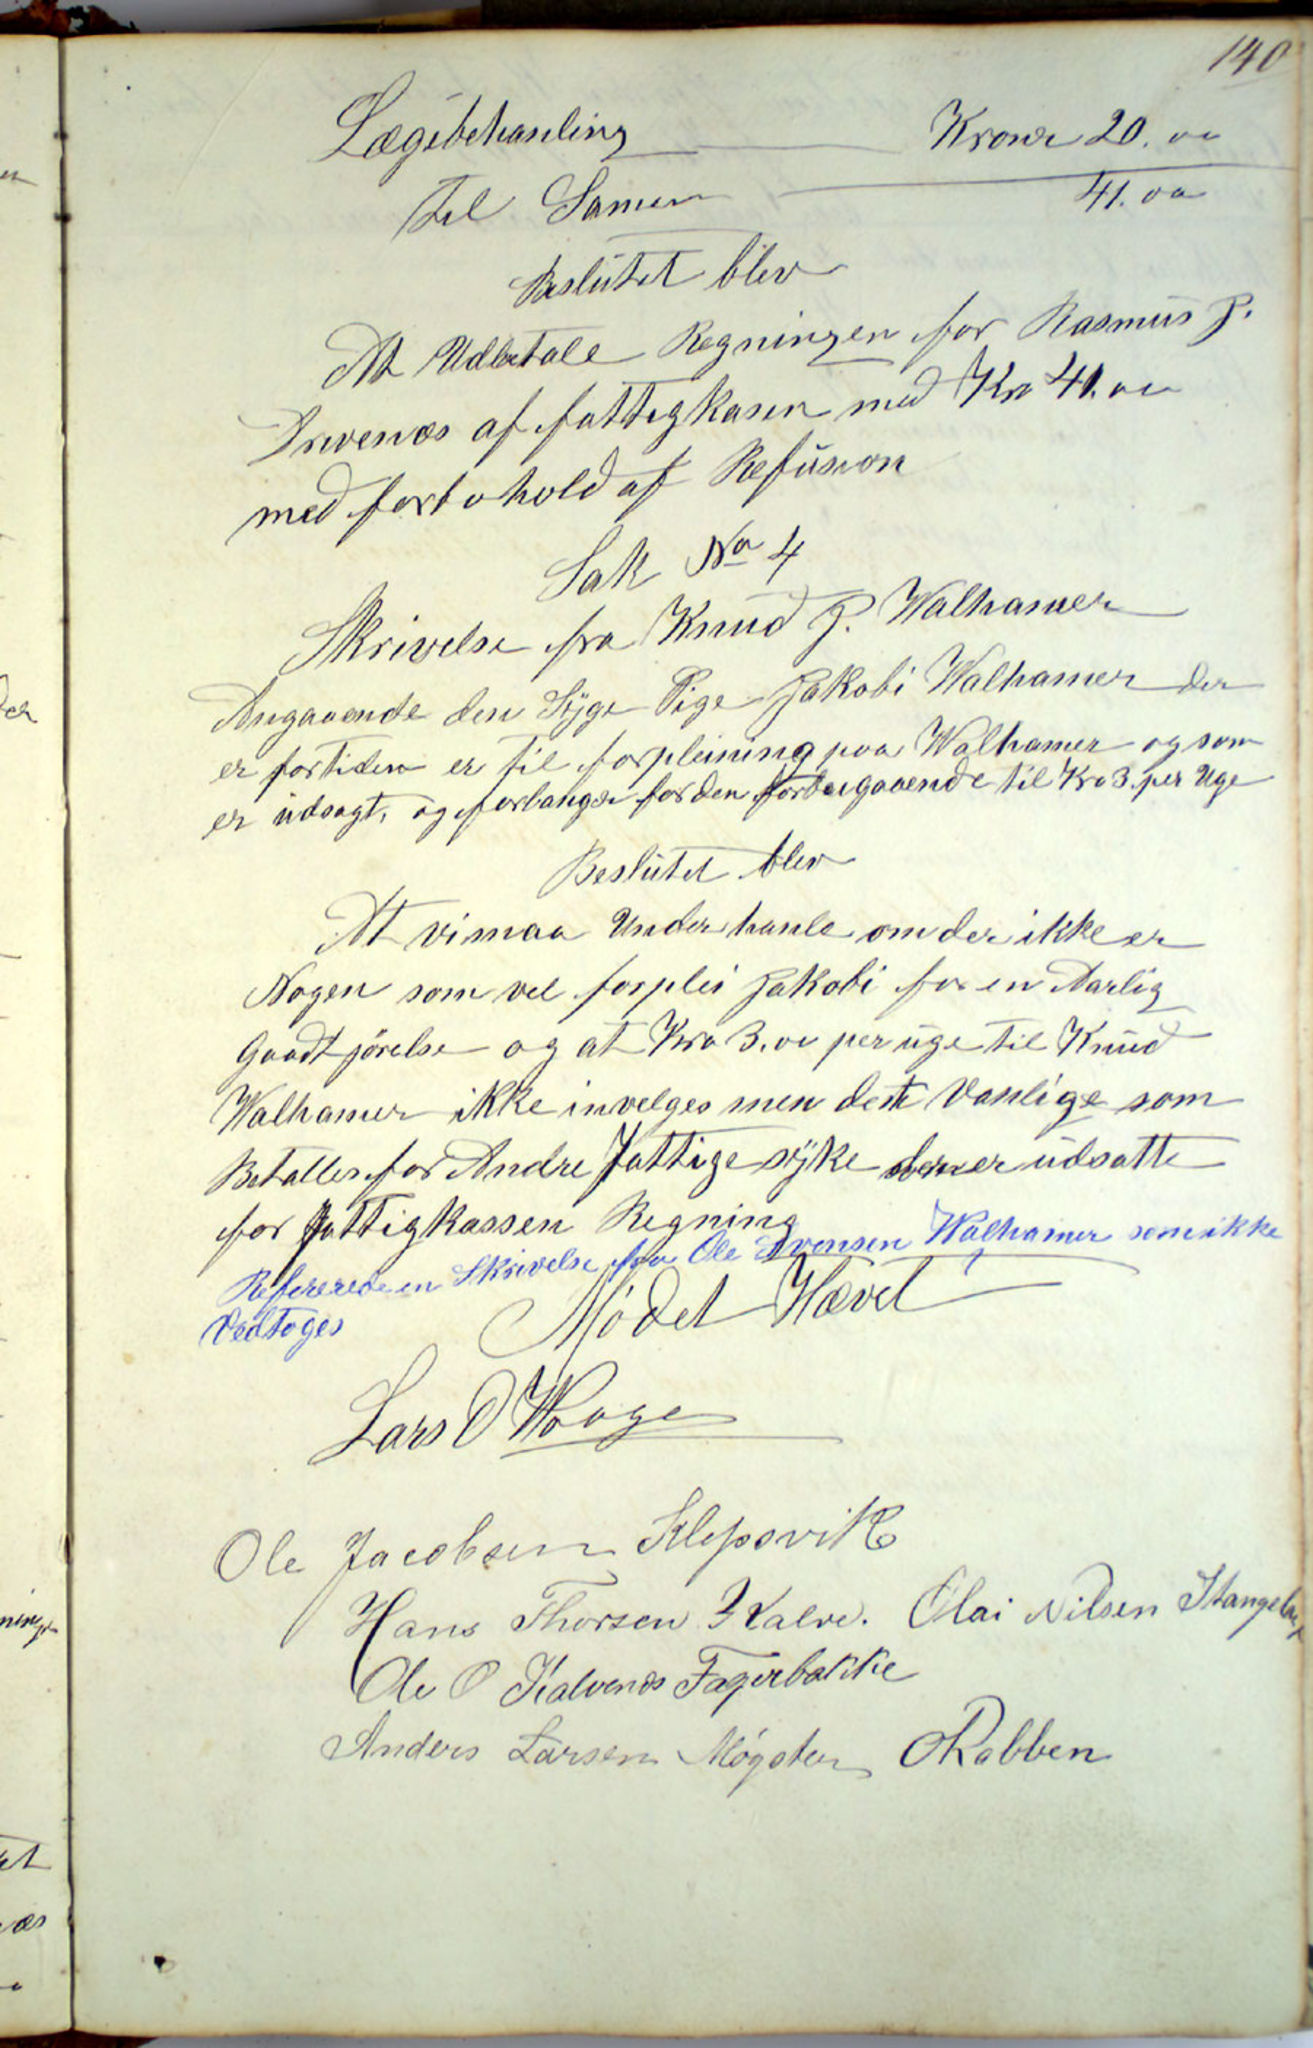 140
Lægebehanling Kroner 20.00
til Samen 41.00
Beslutet blev
At Udbetale Regningen for Rasmus J.
Drivenæs af fattigkasen med Kro 41.00
med forbohold af Refusion
Sak No 4
Skrivelse fra Knud J. Walhamer
Angaaende den Syge Pige Jakobi Walhamer der
er fortiden er til forpleining paa Walhamer og som
er udsagt, og forlanger for den forbigaaende til Kro 3. per Uge
Beslutet blev
At vi maa Underhanle om der ikke er
Nogen som vel forplei Jakobi for en Aarlig
Gaadtjørelse og at Kro 3.00 per uge til Knud
Walhamer ikke invelges men dett Vanlige som
Betalles for Andre Fattige syke som er udsatte
for Fattigkassen Regning
Refererede en Skrivelse fra Ole Svensen Walhamer som ikke
Vedtoges
Mødet Hævet
Lars O Waage
Ole Jacobsen Klepsvik
Hans Thorsen Kalve. Olai Nilsen Stangeland
Ole O Kalvenæs Fagerbakke
Anders Larsen Møgster ORabben